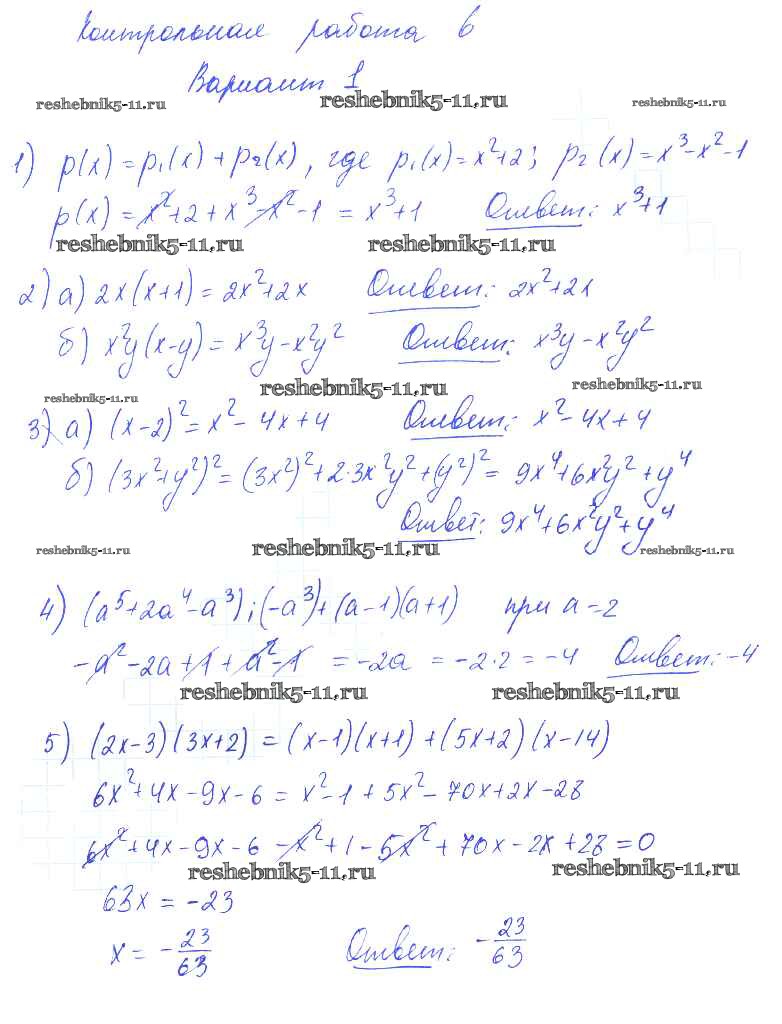 Контрольная работа 6
Вариант 1
reshebnik5-11.ru reshebnik5-11.ru reshebnik5-11.ru
1) p(x) = p₁(x) + p₂(x), где p₁(x) = x²+2; p₂(x) = x³-x²-1
p(x) = x²+2+x³-x²-1 = x³+1 Ответ: x³+1
reshebnik5-11.ru reshebnik5-11.ru
2) а) 2x(x+1) = 2x²+2x Ответ: 2x²+2x
б) x²y(x-y) = x³y-x²y² Ответ: x³y-x²y²
reshebnik5-11.ru reshebnik5-11.ru reshebnik5-11.ru
3) а) (x-2)² = x²-4x+4 Ответ: x²-4x+4
б) (3x²+y²)² = (3x²)²+2·3x²y²+(y²)² = 9x⁴+6x²y²+y⁴
Ответ: 9x⁴+6x²y²+y⁴
reshebnik5-11.ru reshebnik5-11.ru reshebnik5-11.ru
4) (a⁵+2a⁴-a³):(-a³)+(a-1)(a+1) при a=2
-a²-2a+1+a²-1 = -2a = -2·2 = -4 Ответ: -4
reshebnik5-11.ru reshebnik5-11.ru
5) (2x-3)(3x+2) = (x-1)(x+1)+(5x+2)(x-14)
6x²+4x-9x-6 = x²-1+5x²-70x+2x-28
6x²+4x-9x-6-x²+1-5x²+70x-2x+28=0
reshebnik5-11.ru reshebnik5-11.ru
63x = -23
x = -23/63 Ответ: -23/63